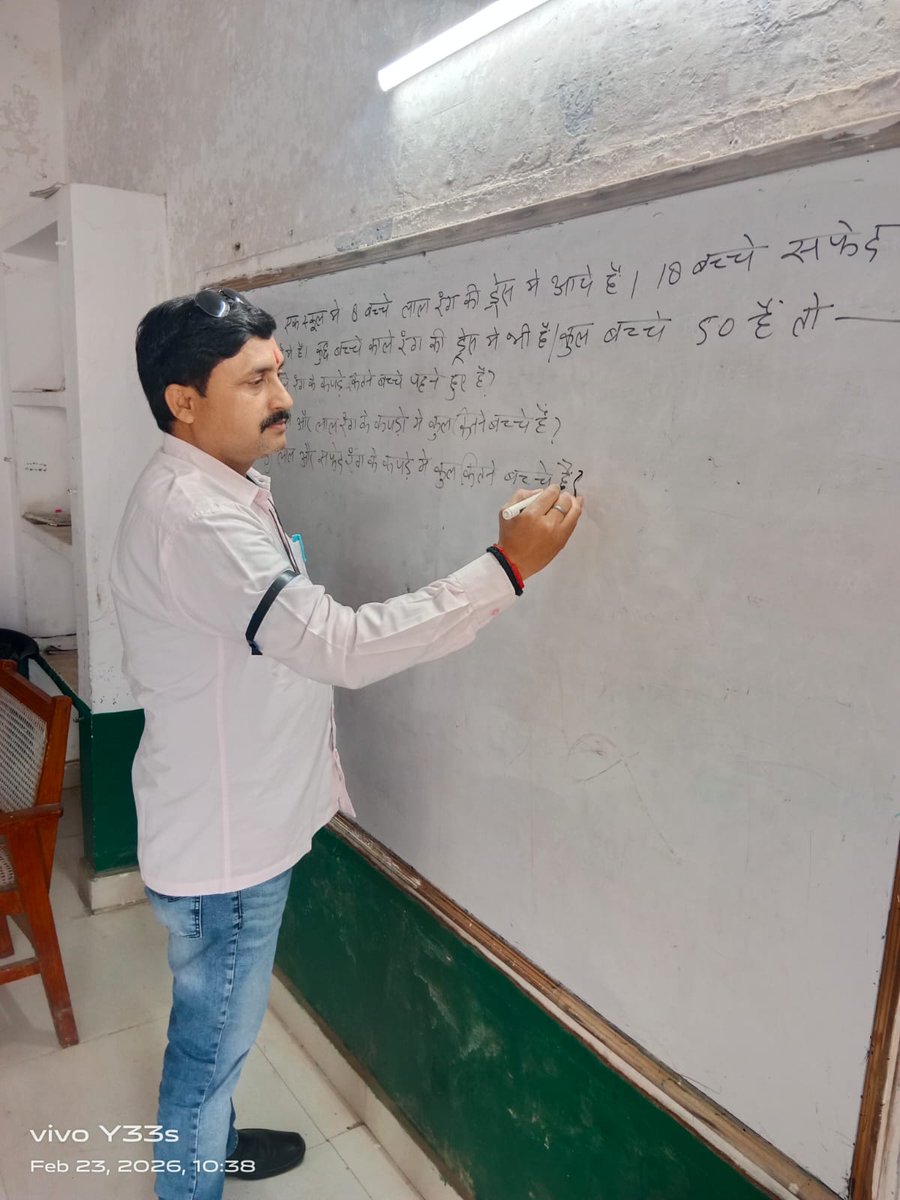 एक स्कूल मे 8 बच्चे लाल रंग की ड्रेस मे आये हैं। 18 बच्चे सफेद
है। कुछ बच्चे काले रंग की ड्रेस मे भी हैं। कुल बच्चे 50 हैं तो —
रंग के कपड़े कितने बच्चे पहने हुए हैं?
और लाल रंग के कपड़ो मे कुल कितने बच्चे हैं?
लाल और सफेद रंग के कपड़े मे कुल कितने बच्चे है?
vivo Y33s
Feb 23, 2026, 10:38